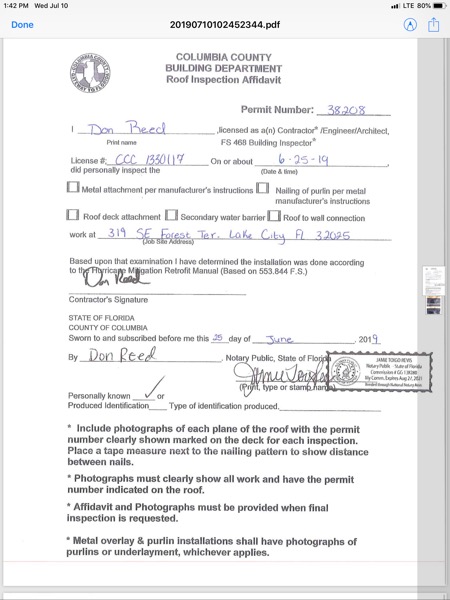 1:42 PM Wed Jul 10 LTE 80%
Done 20190710102452344.pdf
COLUMBIA COUNTY
BUILDING DEPARTMENT
Roof Inspection Affidavit
Permit Number: 38208
I Don Reed ,licensed as a(n) Contractor* /Engineer/Architect,
Print name FS 468 Building Inspector*
License #; CCC 1330117 On or about 6-25-19 ,
did personally inspect the (Date & time)
Metal attachment per manufacturer's instructions Nailing of purlin per metal
manufacturer's instructions
Roof deck attachment Secondary water barrier Roof to wall connection
work at 319 SE Forest Ter. Lake City FL 32025
(Job Site Address)
Based upon that examination I have determined the installation was done according
to the Hurricane Mitigation Retrofit Manual (Based on 553.844 F.S.)
Don Reed
Contractor's Signature
STATE OF FLORIDA
COUNTY OF COLUMBIA
Sworn to and subscribed before me this 25 day of June , 2019
By Don Reed , Notary Public, State of Florida
(Print, type or stamp name)
JAMIE TOIGO REVIS
Notary Public - State of Florida
My Comm. Expires Aug 27, 2021
Personally known ✓ or
Produced Identification Type of identification produced.
* Include photographs of each plane of the roof with the permit
number clearly shown marked on the deck for each inspection.
Place a tape measure next to the nailing pattern to show distance
between nails.
* Photographs must clearly show all work and have the permit
number indicated on the roof.
* Affidavit and Photographs must be provided when final
inspection is requested.
* Metal overlay & purlin installations shall have photographs of
purlins or underlayment, whichever applies.